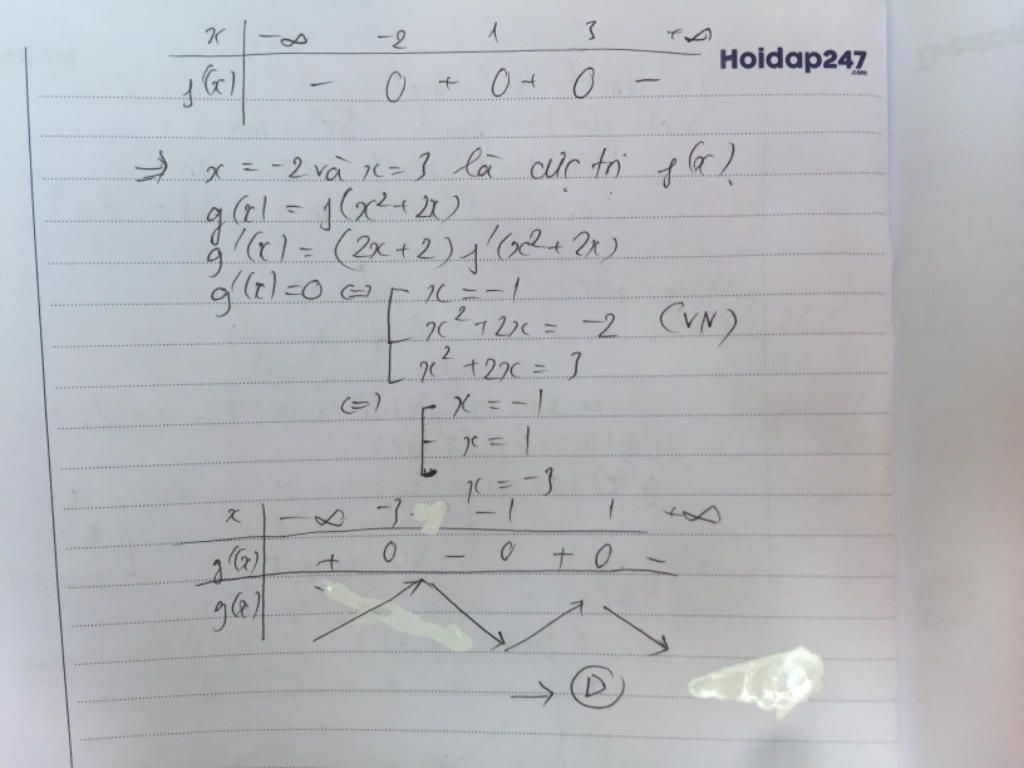 x -∞ -2 1 3 +∞
Hoidap247
.com
f'(x) - 0 + 0 + 0 -
=> x = -2 và x = 3 là cực trị f(x).
g(x) = f(x²+2x)
g'(x) = (2x+2) f'(x²+2x)
g'(x)=0 <=> [ x = -1
x²+2x = -2 (VN)
x²+2x = 3
<=> [ x = -1
x = 1
x = -3
x -∞ -3 -1 1 +∞
g'(x) + 0 - 0 + 0 -
g(x)
→ D